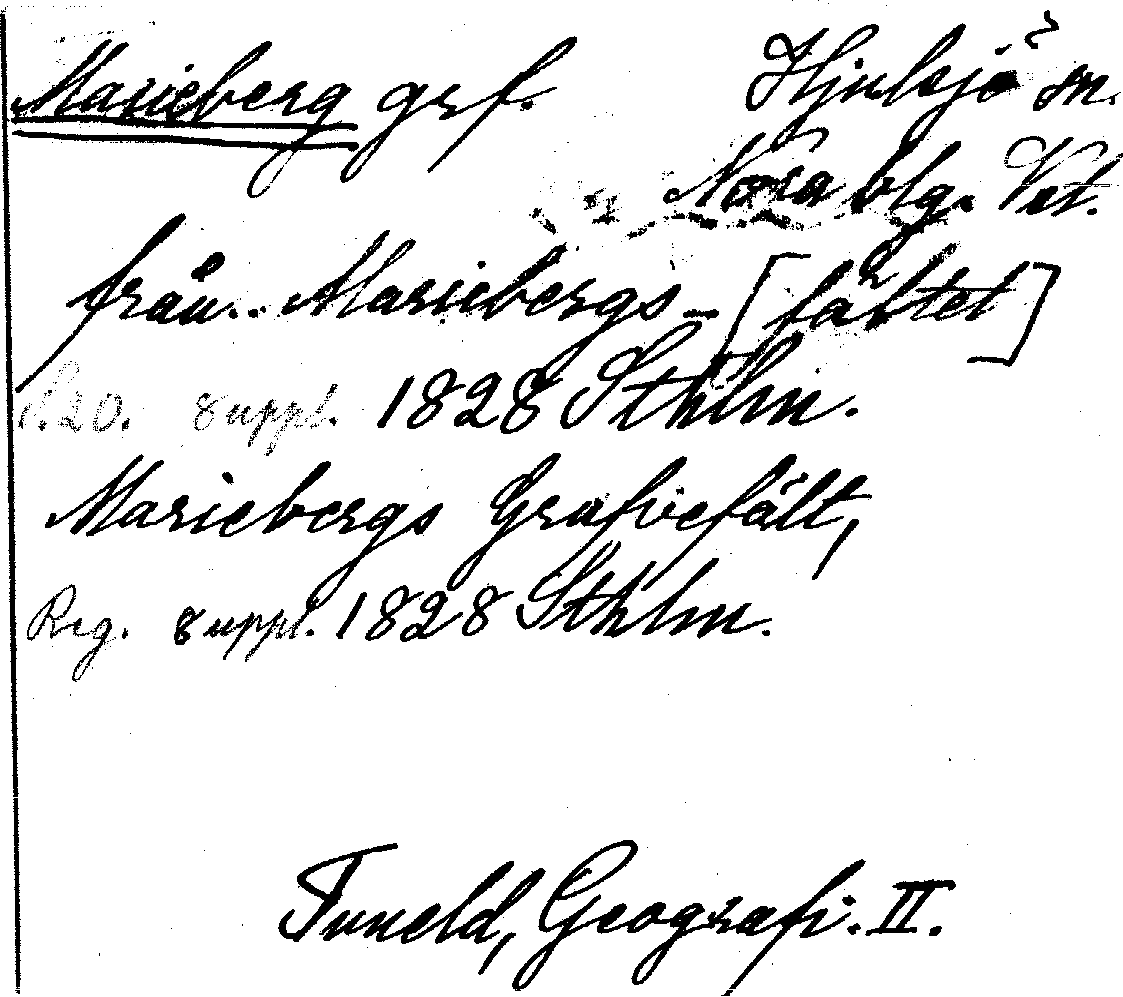 Marieberg grf. Hjulsjö sn.
Nora blg. Vst.
från.. Mariebergs- [fältet]
s. 20. suppl. 1828 Sthlm.
Mariebergs Grufvefält,
Reg. suppl. 1828 Sthlm.
Tuneld, Geografi. II.